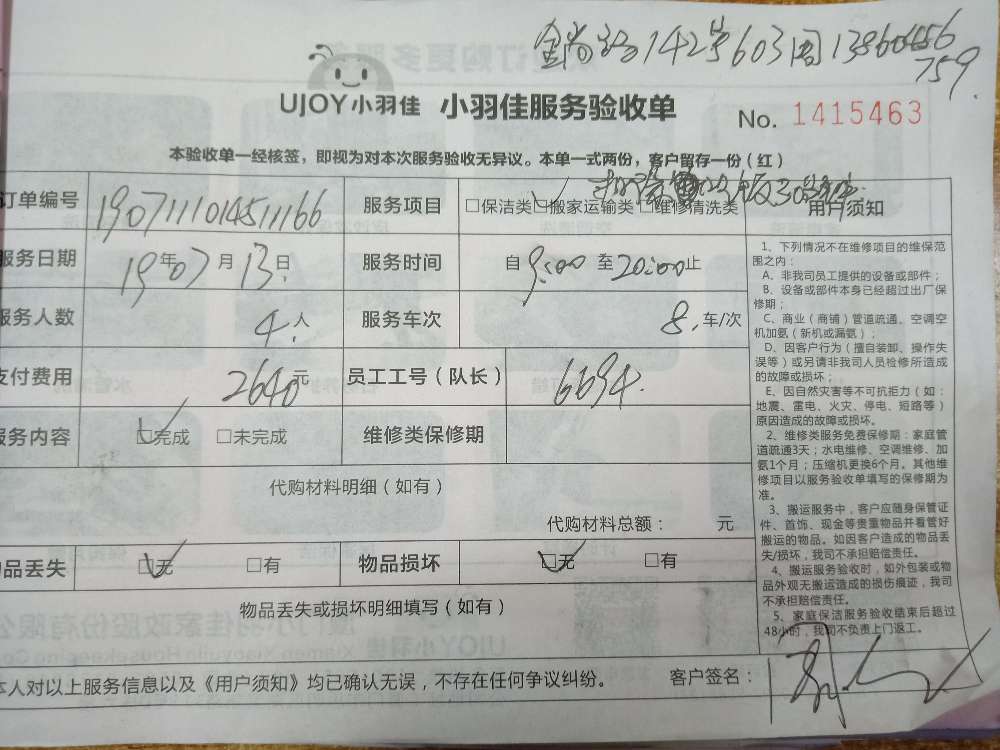 金尚路142号603周13860456
759.
UJOY小羽佳 小羽佳服务验收单 No. 1415463
本验收单一经核签，即视为对本次服务验收无异议。本单一式两份，客户留存一份（红）
订单编号 190711101451166 服务项目 □保洁类□搬家运输类□维修清洗类 用户须知
服务日期 19年07月13日 服务时间 自9:00至20:00止
服务人数 4人 服务车次 8车/次
支付费用 2640元 员工工号（队长） 6694
服务内容 □完成 □未完成 维修类保修期
代购材料明细（如有）
代购材料总额： 元
物品丢失 □无 □有 物品损坏 □无 □有
物品丢失或损坏明细填写（如有）
本人对以上服务信息以及《用户须知》均已确认无误，不存在任何争议纠纷。 客户签名：
1、下列情况不在维修项目的维保范
围之内：
A、非我司员工提供的设备或部件；
B、设备或部件本身已经超过出厂保
修期；
C、商业（商铺）管道疏通、空调空
机加氨（新机或漏氨）；
D、因客户行为（擅自装卸、操作失
误等）或另请非我司人员检修所造成
的故障或损坏；
E、因自然灾害等不可抗拒力（如：
地震、雷电、火灾、停电、短路等）
原因造成的故障或损坏。
2、维修类服务免费保修期：家庭管
道疏通3天；水电维修、空调维修、加
氨1个月；压缩机更换6个月。其他维
修项目以服务验收单填写的保修期为
准。
3、搬运服务中，客户应随身保管证
件、首饰、现金等贵重物品并看管好
搬运的物品。如因客户造成的物品丢
失/损坏，我司不承担赔偿责任。
4、搬运服务验收时，如外包装或物
品外观无搬运造成的损伤痕迹，我司
不承担赔偿责任。
5、家庭保洁服务验收结束后超过
48小时，我司不负责上门返工。